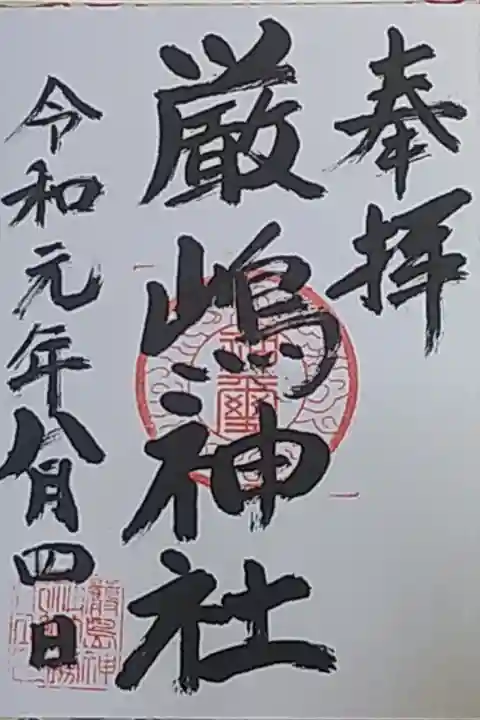 奉拝
厳嶋神社
令和元年八月四日